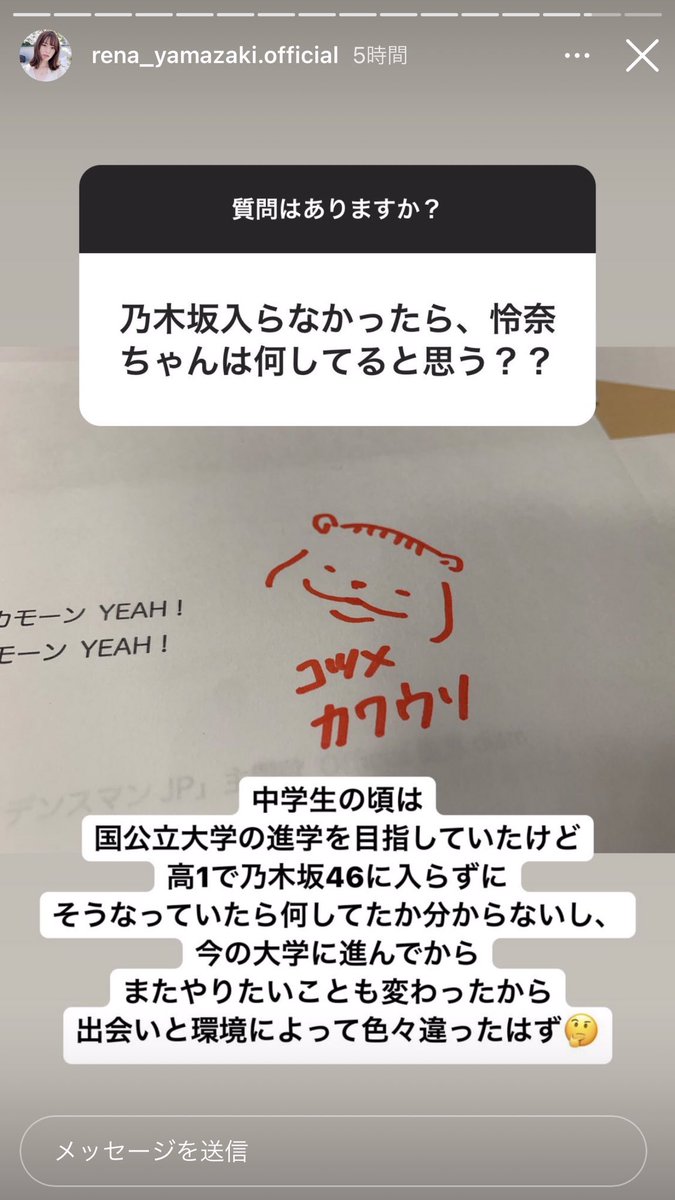 rena_yamazaki.official 5時間
質問はありますか？
乃木坂入らなかったら、怜奈
ちゃんは何してると思う？？
カモーン YEAH！
モーン YEAH！
コツメ
カワウソ
デンスマンJP」
中学生の頃は
国公立大学の進学を目指していたけど
高1で乃木坂46に入らずに
そうなっていたら何してたか分からないし、
今の大学に進んでから
またやりたいことも変わったから
出会いと環境によって色々違ったはず🤔
メッセージを送信